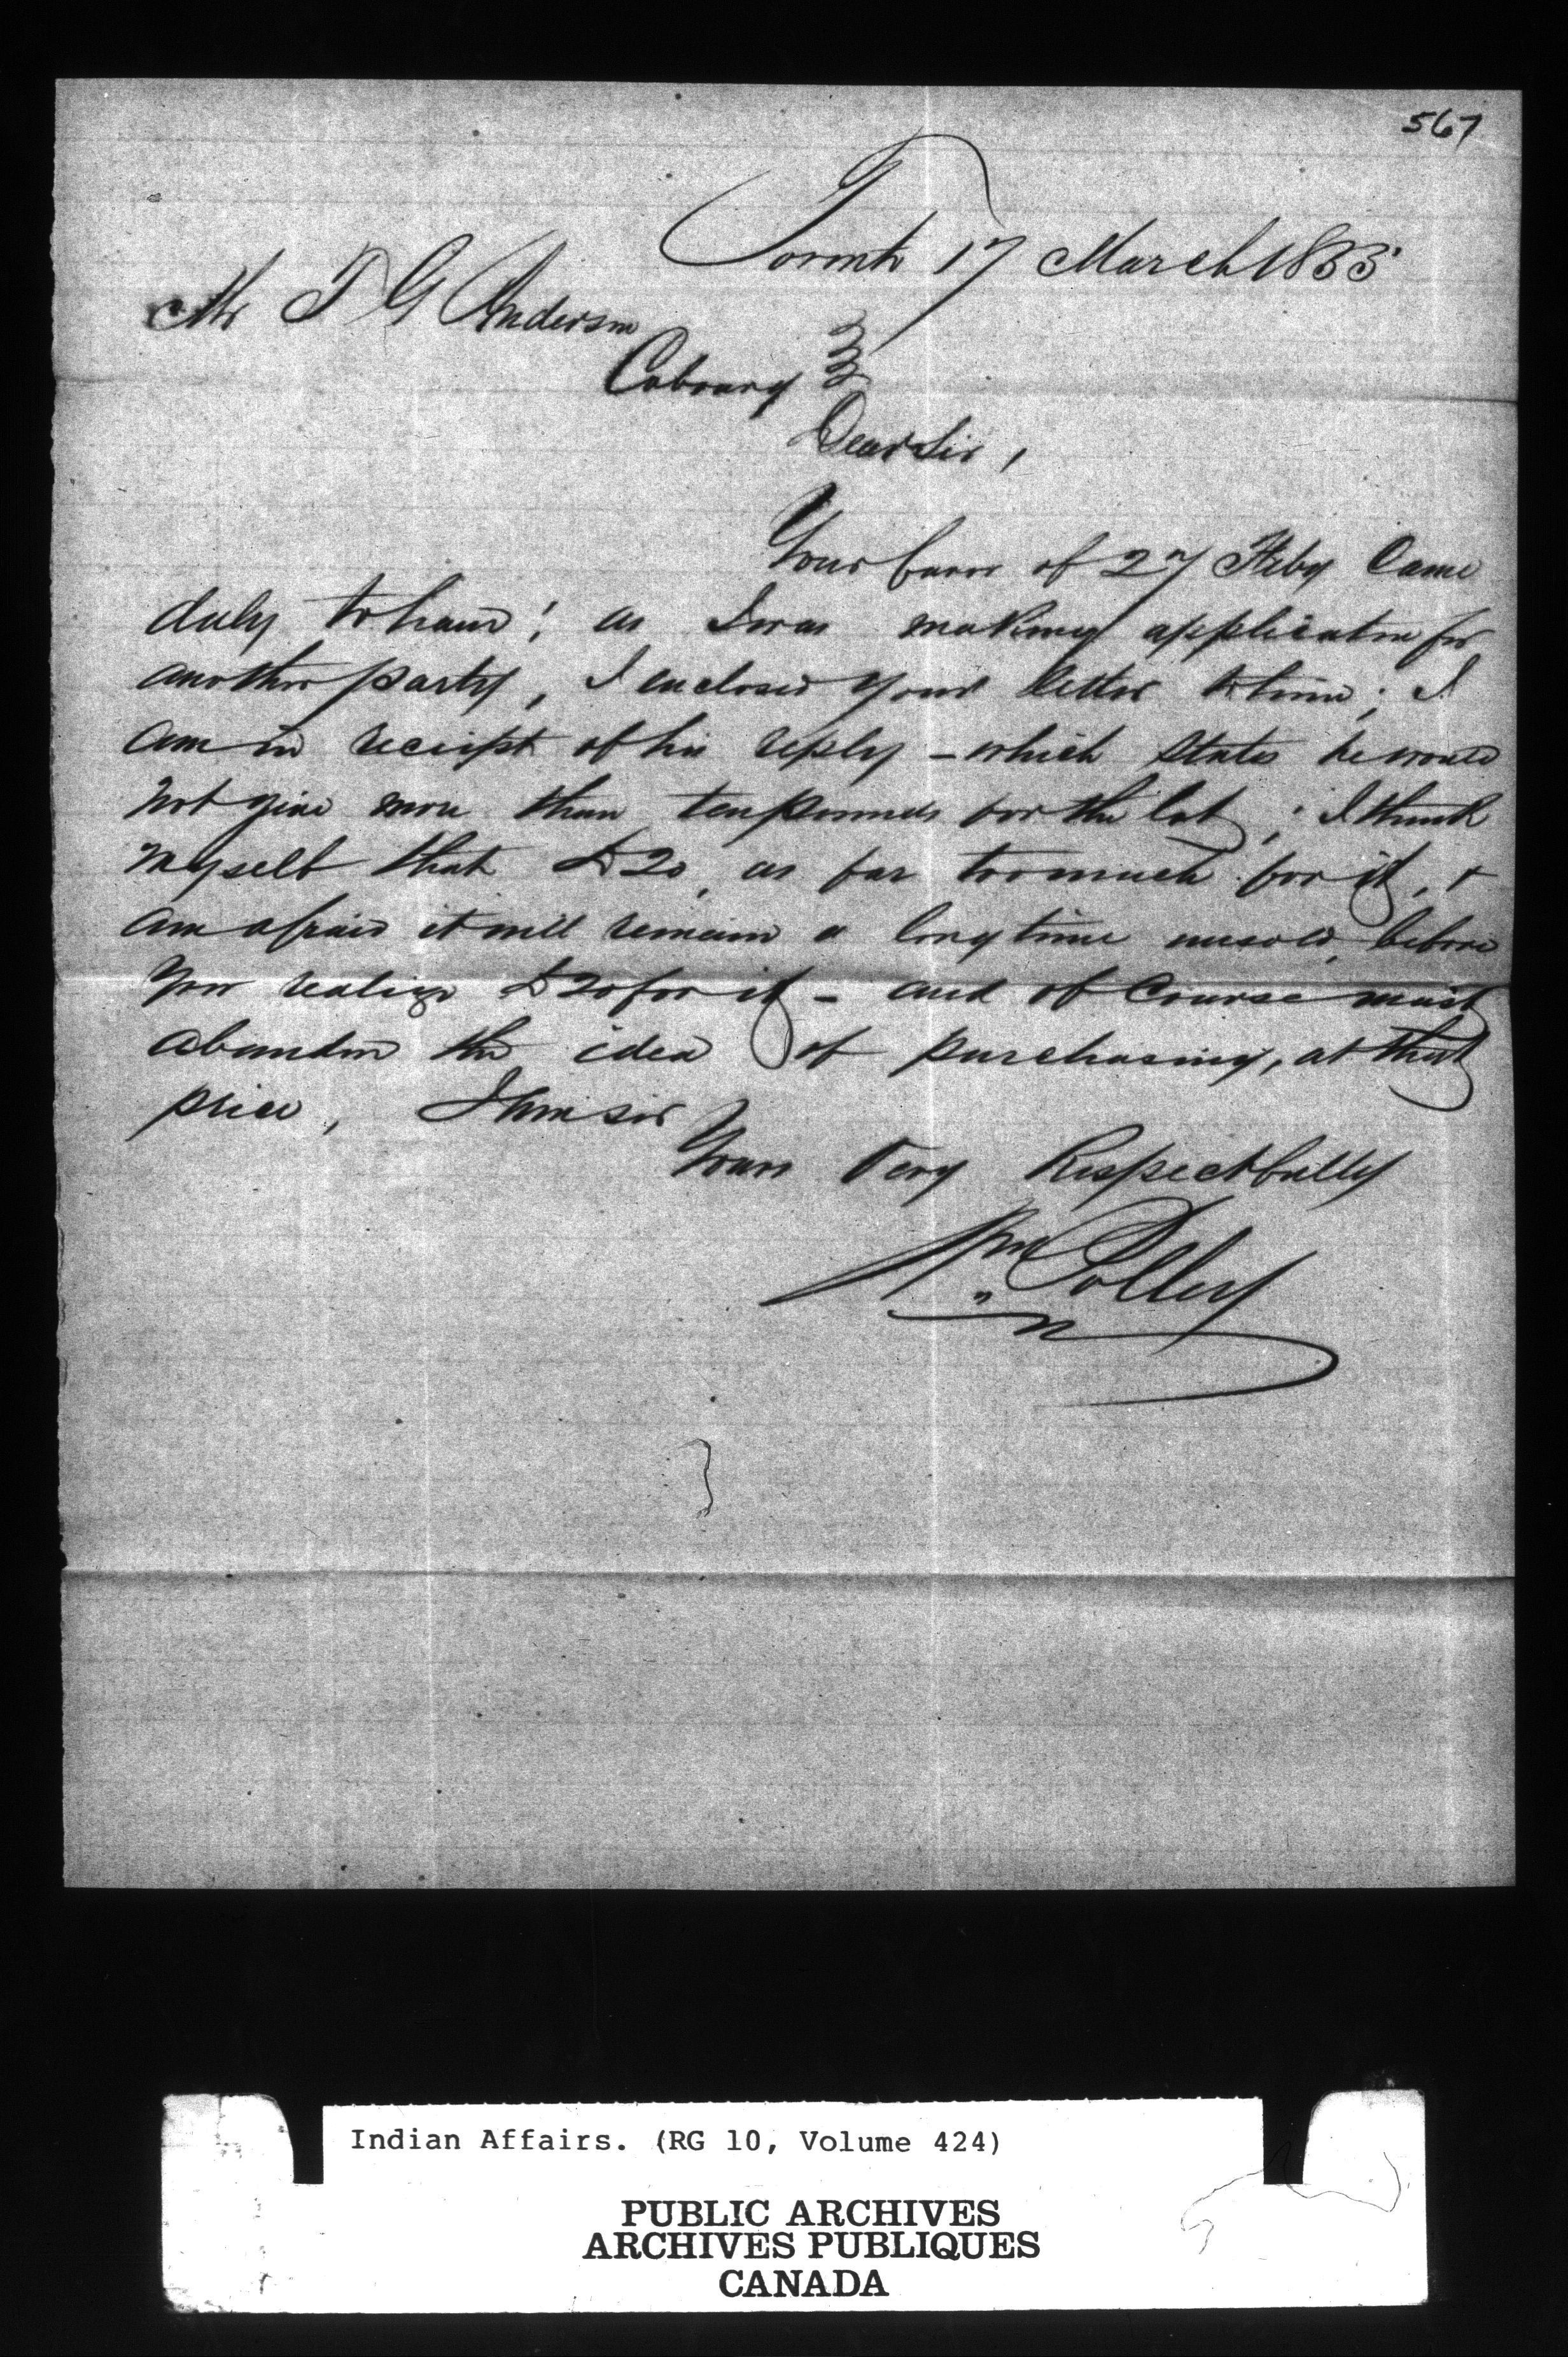 567
Toronto 17 March 1853
Mr T G Anderson
Cobourg
Dear Sir,
Your favor of 27 Feby Came
duly to hand; as I was making application for
another party, I enclosed your letter to him; I
am in receipt of his reply - which states he would
not give more than ten pounds for the lot; I think
myself that £20, is far too much for it, &
am afraid it will remain a long time unsold, before
you realize £20 for it - and of Course must
abandon the idea of purchasing, at that
price, I am sir
Yours Very Respectfully
Wm Polley
Indian Affairs. (RG 10, Volume 424)
PUBLIC ARCHIVES
ARCHIVES PUBLIQUES
CANADA